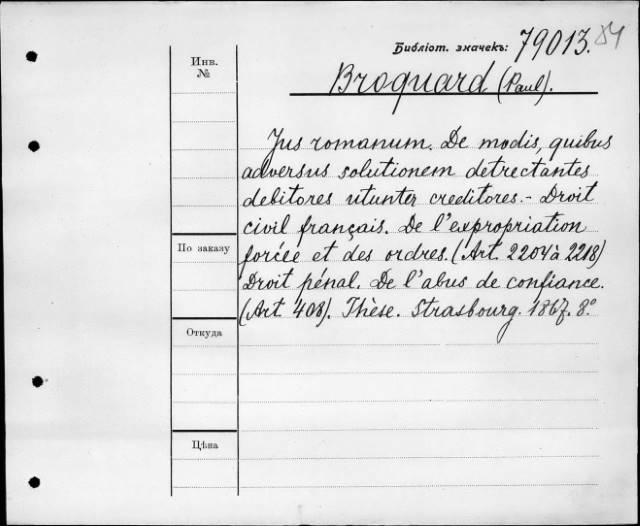 Библіот. значекъ: 79013.
Инв.
№
Broquard (Paul).
Jus romanum. De modis, quibus
adversus solutionem detrectantes
debitores utunter creditores. - Droit
civil français. De l'expropriation
forcée et des ordres. (Art. 2204 à 2218)
Droit pénal. De l'abus de confiance.
(Art. 408). Thèse. Strasbourg. 1867. 8.º
По заказу
Откуда
Цѣна